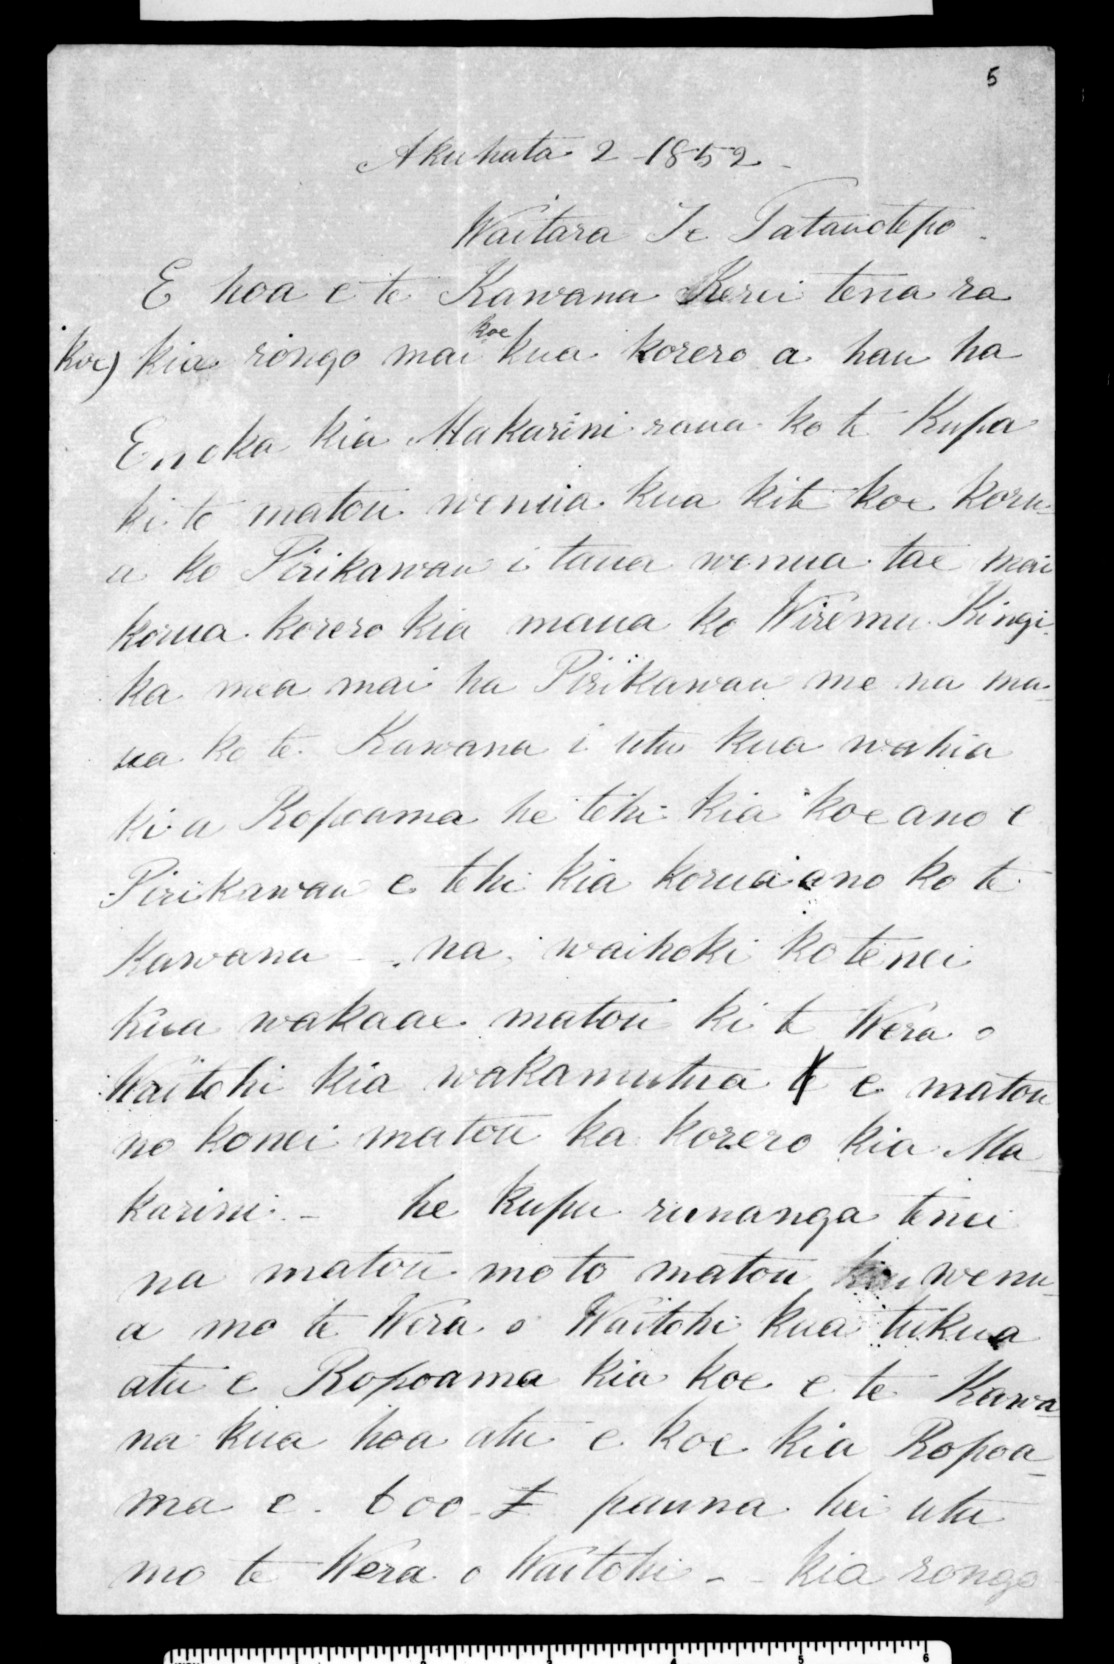 5
Akuhata 2 - 1852 -
Waitara Te Tatauotepo -
E hoa e te Kawana Kerei tena ra
koe) kia rongo mai koe kua korero a hau ha
Enoka kia Makarini raua ko te Kupa
ki to matou wenua kua kite koe koru-
a ko Pirikawau i taua wenua tae mai
korua korero kia maua ko Wiremu Kingi
ka mea mai ha Pirikawau me na ma-
ua ko te Kawana i utu kua wahia
ki a Ropoama he tehi kia koe ano e
Pirikawau e tehi kia korua ano ko te
Kawana - . na, waihoki ko tenei
kua wakaae matou ki te Wera o
Waitohi kia wakamutua e matou
no konei matou ka korero kia Ma-
karini - he kupu runanga tenei
na matou mo to matou wenu-
a mo te Wera o Waitohi kua tukua
atu e Ropoama kia koe e te Kawa-
na kua hoa atu e koe kia Ropoa-
ma e . 600 - £ pauna hei utu
mo te Wera o Waitohi - - kia rongo